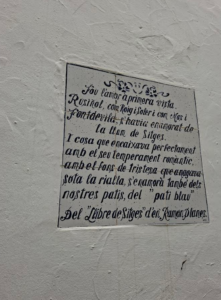 Fou l'amor a primera vista.
Rusiñol, com Roig i Soler i com Mas i
Fontdevila, s'havia enamorat de
la llum de Sitges.
I cosa que encaixava perfectament
amb el seu temperament romàntic,
amb el fons de tristesa que amagava
sota la rialla, s'enamorà també dels
nostres patis, del "pati blau"
Del "Llibre de Sitges" d'en Ramon Planes